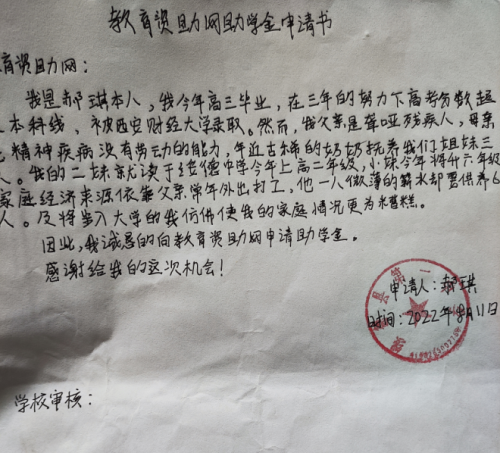 教育资助网助学金申请书
育资助网：
我是郝琪本人，我今年高三毕业，在三年的努力下高考分数超
本科线，被西安财经大学录取。然而，我父亲是聋哑残疾人，母亲
精神疾病没有劳动的能力，年近古稀的奶奶抚养我们姐妹三
人。我的二妹就读于绥德中学今年上高二年级，小妹今年将升六年级
家庭经济来源依靠父亲常年外出打工，他一人微薄的薪水却要供养6
人。及将步入大学的我仿佛使我的家庭情况更为雪糕。
因此，我诚恳的向教育资助网申请助学金。
感谢给我的这次机会！
申请人：郝琪
时间：2022年8月11日
学校审核：